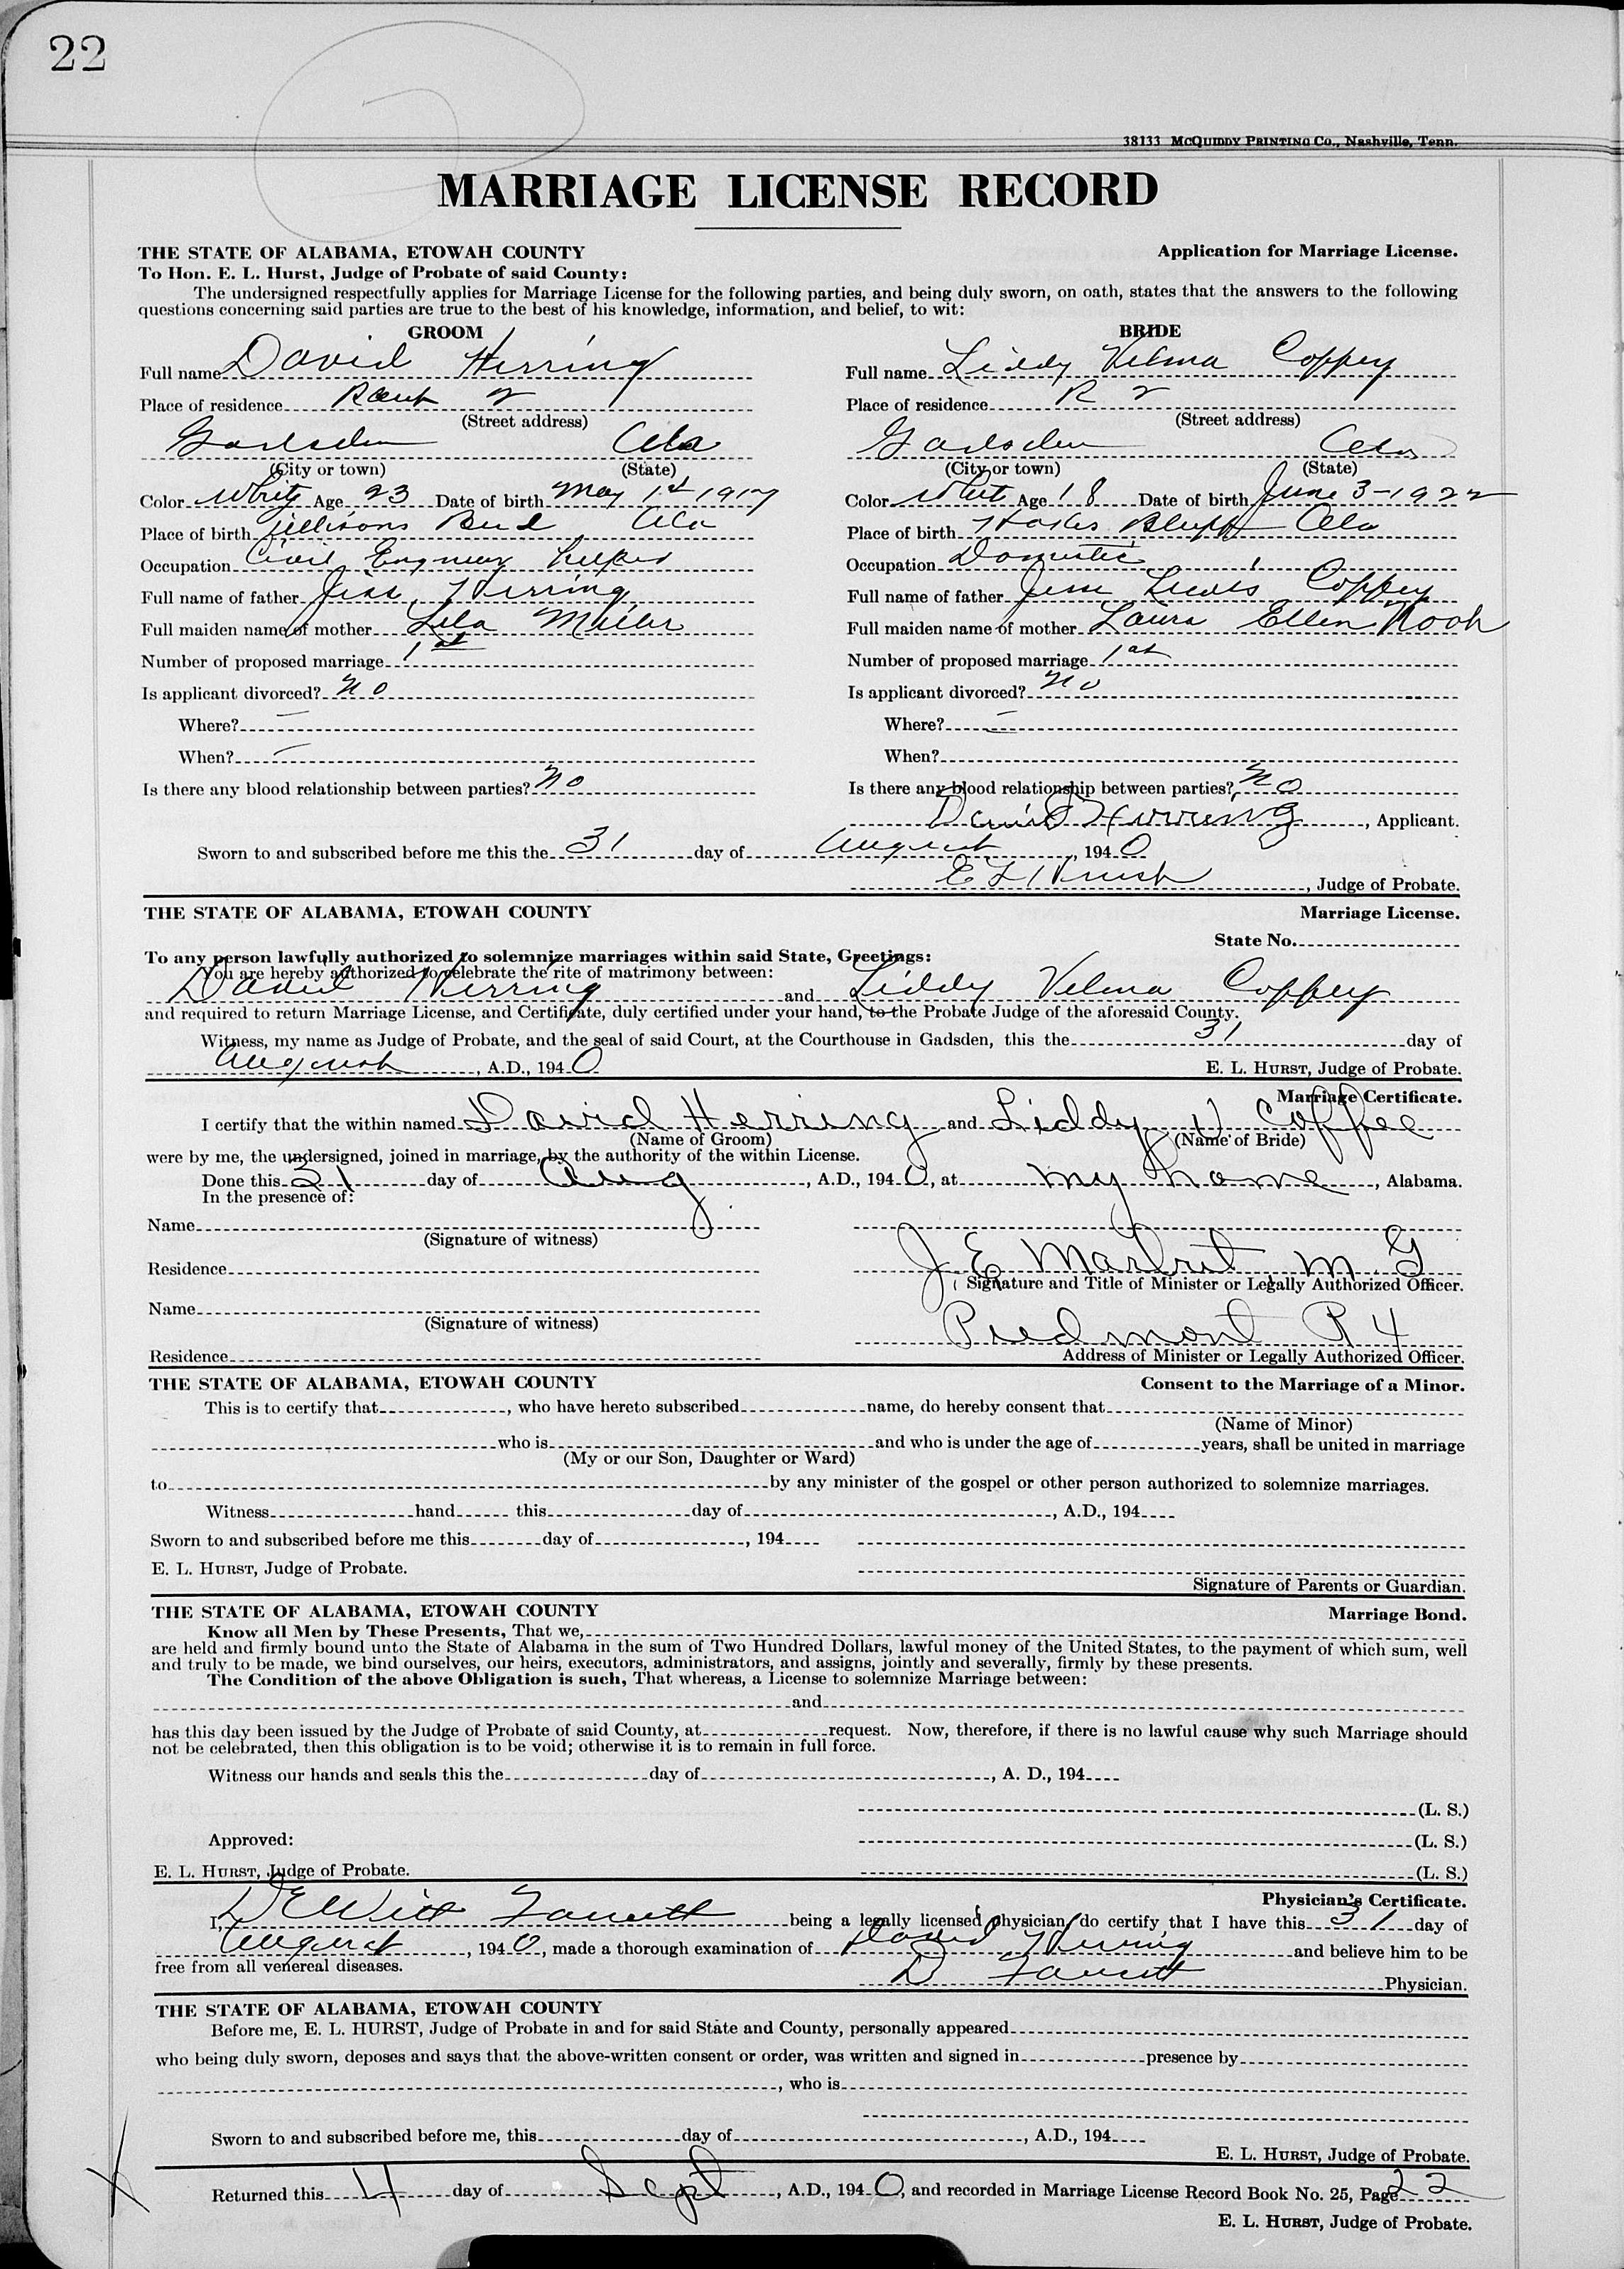 22
38133 McQuiddy Printing Co., Nashville, Tenn.
MARRIAGE LICENSE RECORD
THE STATE OF ALABAMA, ETOWAH COUNTY Application for Marriage License.
To Hon. E. L. Hurst, Judge of Probate of said County:
The undersigned respectfully applies for Marriage License for the following parties, and being duly sworn, on oath, states that the answers to the following
questions concerning said parties are true to the best of his knowledge, information, and belief, to wit:
GROOM
Full name David Herring
Place of residence 2
(Street address)
Gadsden Ala
(City or town) (State)
Color White Age 23 Date of birth May 1st 1917
Place of birth Ala
Occupation Civil
Full name of father Jess Herring
Full maiden name of mother Lela Miller
Number of proposed marriage 1st
Is applicant divorced? no
Where? —
When? —
Is there any blood relationship between parties? no
BRIDE
Full name Liddy Velma Coppey
Place of residence R 2
(Street address)
Gadsden Ala
(City or town) (State)
Color White Age 18 Date of birth June 3-1922
Place of birth Hokes Bluff Ala
Occupation Domestic
Full name of father Jesse Lewis Coppey
Full maiden name of mother Laura Ellen
Number of proposed marriage 1st
Is applicant divorced? no
Where? —
When?
Is there any blood relationship between parties? no
David Herring, Applicant.
Sworn to and subscribed before me this the 31 day of August, 1940
E L Hurst, Judge of Probate.
THE STATE OF ALABAMA, ETOWAH COUNTY Marriage License.
State No.
To any person lawfully authorized to solemnize marriages within said State, Greetings:
You are hereby authorized to celebrate the rite of matrimony between:
David Herring and Liddy Velma Coppey
and required to return Marriage License, and Certificate, duly certified under your hand, to the Probate Judge of the aforesaid County.
Witness, my name as Judge of Probate, and the seal of said Court, at the Courthouse in Gadsden, this the 31 day of
August, A.D., 1940 E. L. Hurst, Judge of Probate.
Marriage Certificate.
I certify that the within named David Herring and Liddy V Coffee
(Name of Groom) (Name of Bride)
were by me, the undersigned, joined in marriage, by the authority of the within License.
Done this 31 day of Aug, A.D., 1940, at my home, Alabama.
In the presence of:
Name
(Signature of witness)
Residence J. E. M G
Signature and Title of Minister or Legally Authorized Officer.
Name
(Signature of witness)
Piedmont R 4
Residence Address of Minister or Legally Authorized Officer.
THE STATE OF ALABAMA, ETOWAH COUNTY Consent to the Marriage of a Minor.
This is to certify that, who have hereto subscribed name, do hereby consent that
(Name of Minor)
who is and who is under the age of years, shall be united in marriage
(My or our Son, Daughter or Ward)
to by any minister of the gospel or other person authorized to solemnize marriages.
Witness hand this day of, A.D., 194
Sworn to and subscribed before me this day of, 194
E. L. Hurst, Judge of Probate.
Signature of Parents or Guardian.
THE STATE OF ALABAMA, ETOWAH COUNTY Marriage Bond.
Know all Men by These Presents, That we,
are held and firmly bound unto the State of Alabama in the sum of Two Hundred Dollars, lawful money of the United States, to the payment of which sum, well
and truly to be made, we bind ourselves, our heirs, executors, administrators, and assigns, jointly and severally, firmly by these presents.
The Condition of the above Obligation is such, That whereas, a License to solemnize Marriage between:
and
has this day been issued by the Judge of Probate of said County, at request. Now, therefore, if there is no lawful cause why such Marriage should
not be celebrated, then this obligation is to be void; otherwise it is to remain in full force.
Witness our hands and seals this the day of, A. D., 194
(L. S.)
Approved: (L. S.)
E. L. Hurst, Judge of Probate. (L. S.)
Physician's Certificate.
I, DeWitt Faucett being a legally licensed physician, do certify that I have this 31 day of
August, 1940, made a thorough examination of David Herring and believe him to be
free from all venereal diseases.
D Faucett Physician.
THE STATE OF ALABAMA, ETOWAH COUNTY
Before me, E. L. HURST, Judge of Probate in and for said State and County, personally appeared
who being duly sworn, deposes and says that the above-written consent or order, was written and signed in presence by
, who is
Sworn to and subscribed before me, this day of, A.D., 194
E. L. Hurst, Judge of Probate.
X
Returned this 4 day of Sept, A.D., 1940, and recorded in Marriage License Record Book No. 25, Page 22
E. L. Hurst, Judge of Probate.